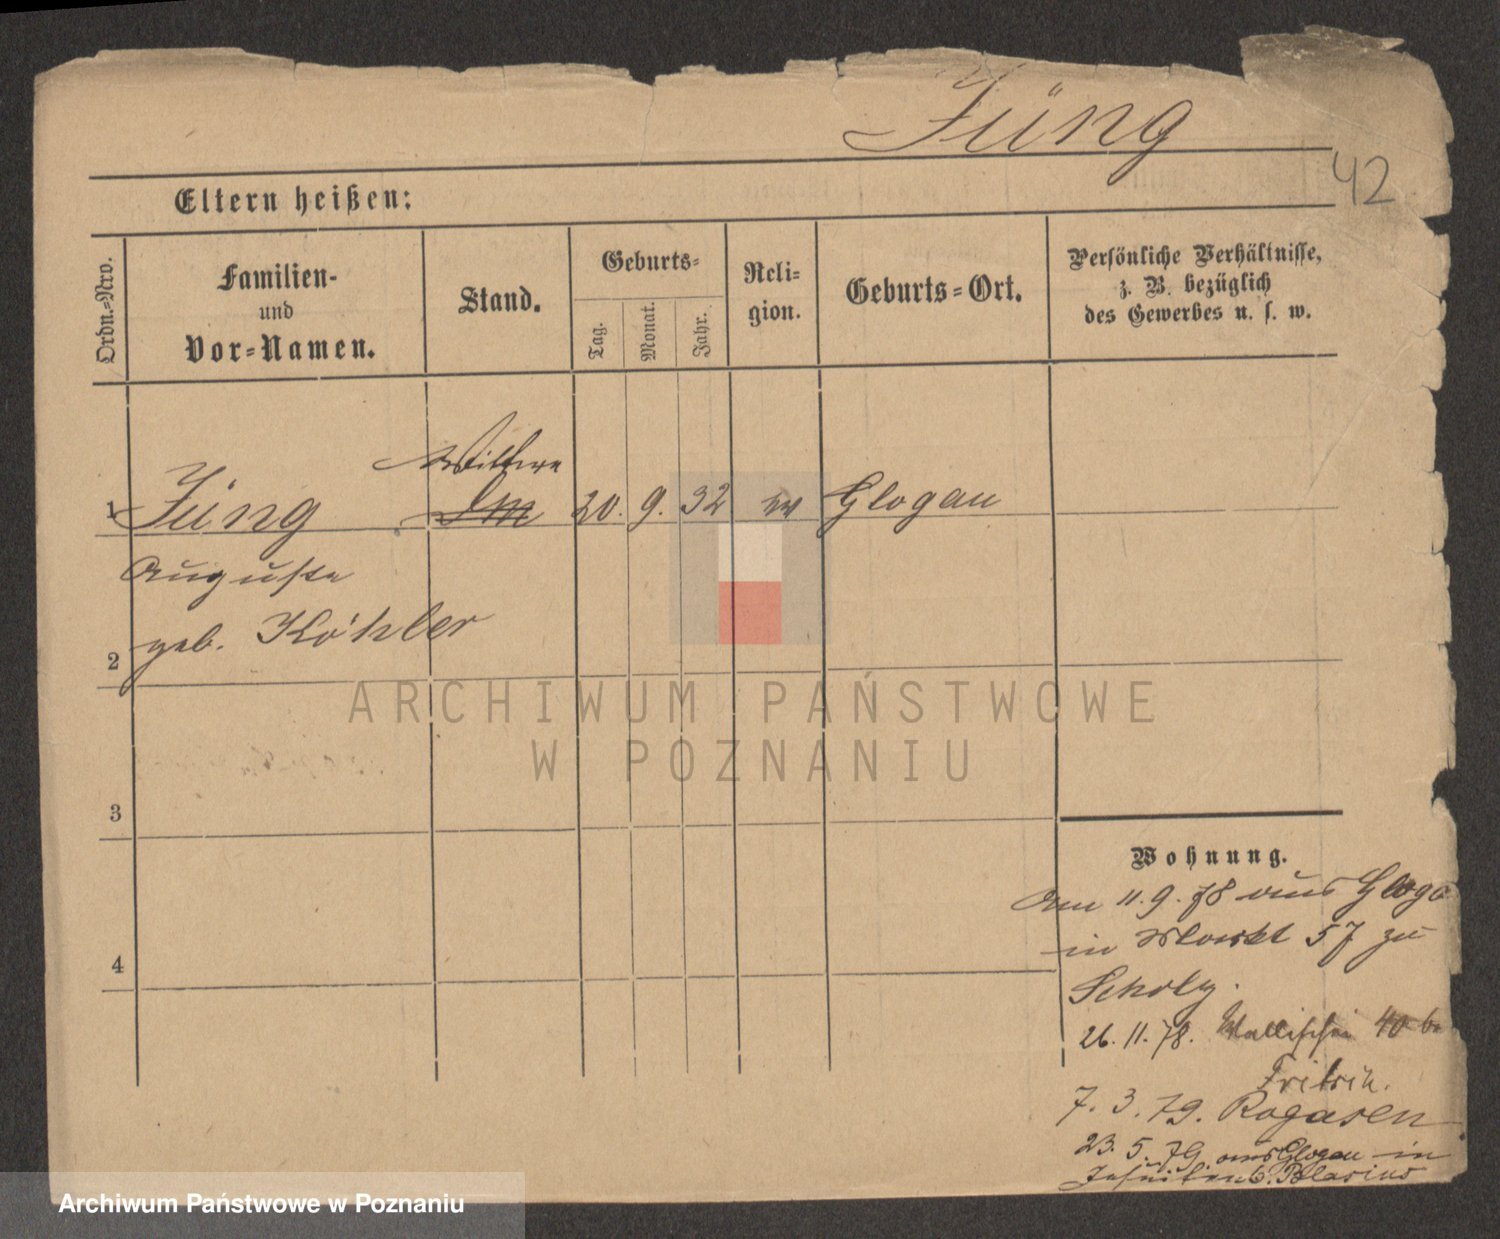 Jüng
42
Eltern heißen:
Ordn.=Nro.
Familien-
und
Vor=Namen.
Stand.
Geburts=
Tag.
Monat.
Jahr.
Reli=
gion.
Geburts=Ort.
Persönliche Verhältnisse,
z. B. bezüglich
des Gewerbes u. s. w.
Wittwe
1 Jüng 20. 9. 32 ev Glogau
Auguste
geb. Köhler
2
ARCHIWUM PAŃSTWOWE
W POZNANIU
3
Wohnung.
Am 11. 9. 78 aus Gloga
in Markt 57 zu
Scholz.
26. 11. 78. Wallischei 40 be
7. 3. 79. Rogasen
23. 5. 79. aus Glogau in
Jesuitenb. Blasius
4
Archiwum Państwowe w Poznaniu